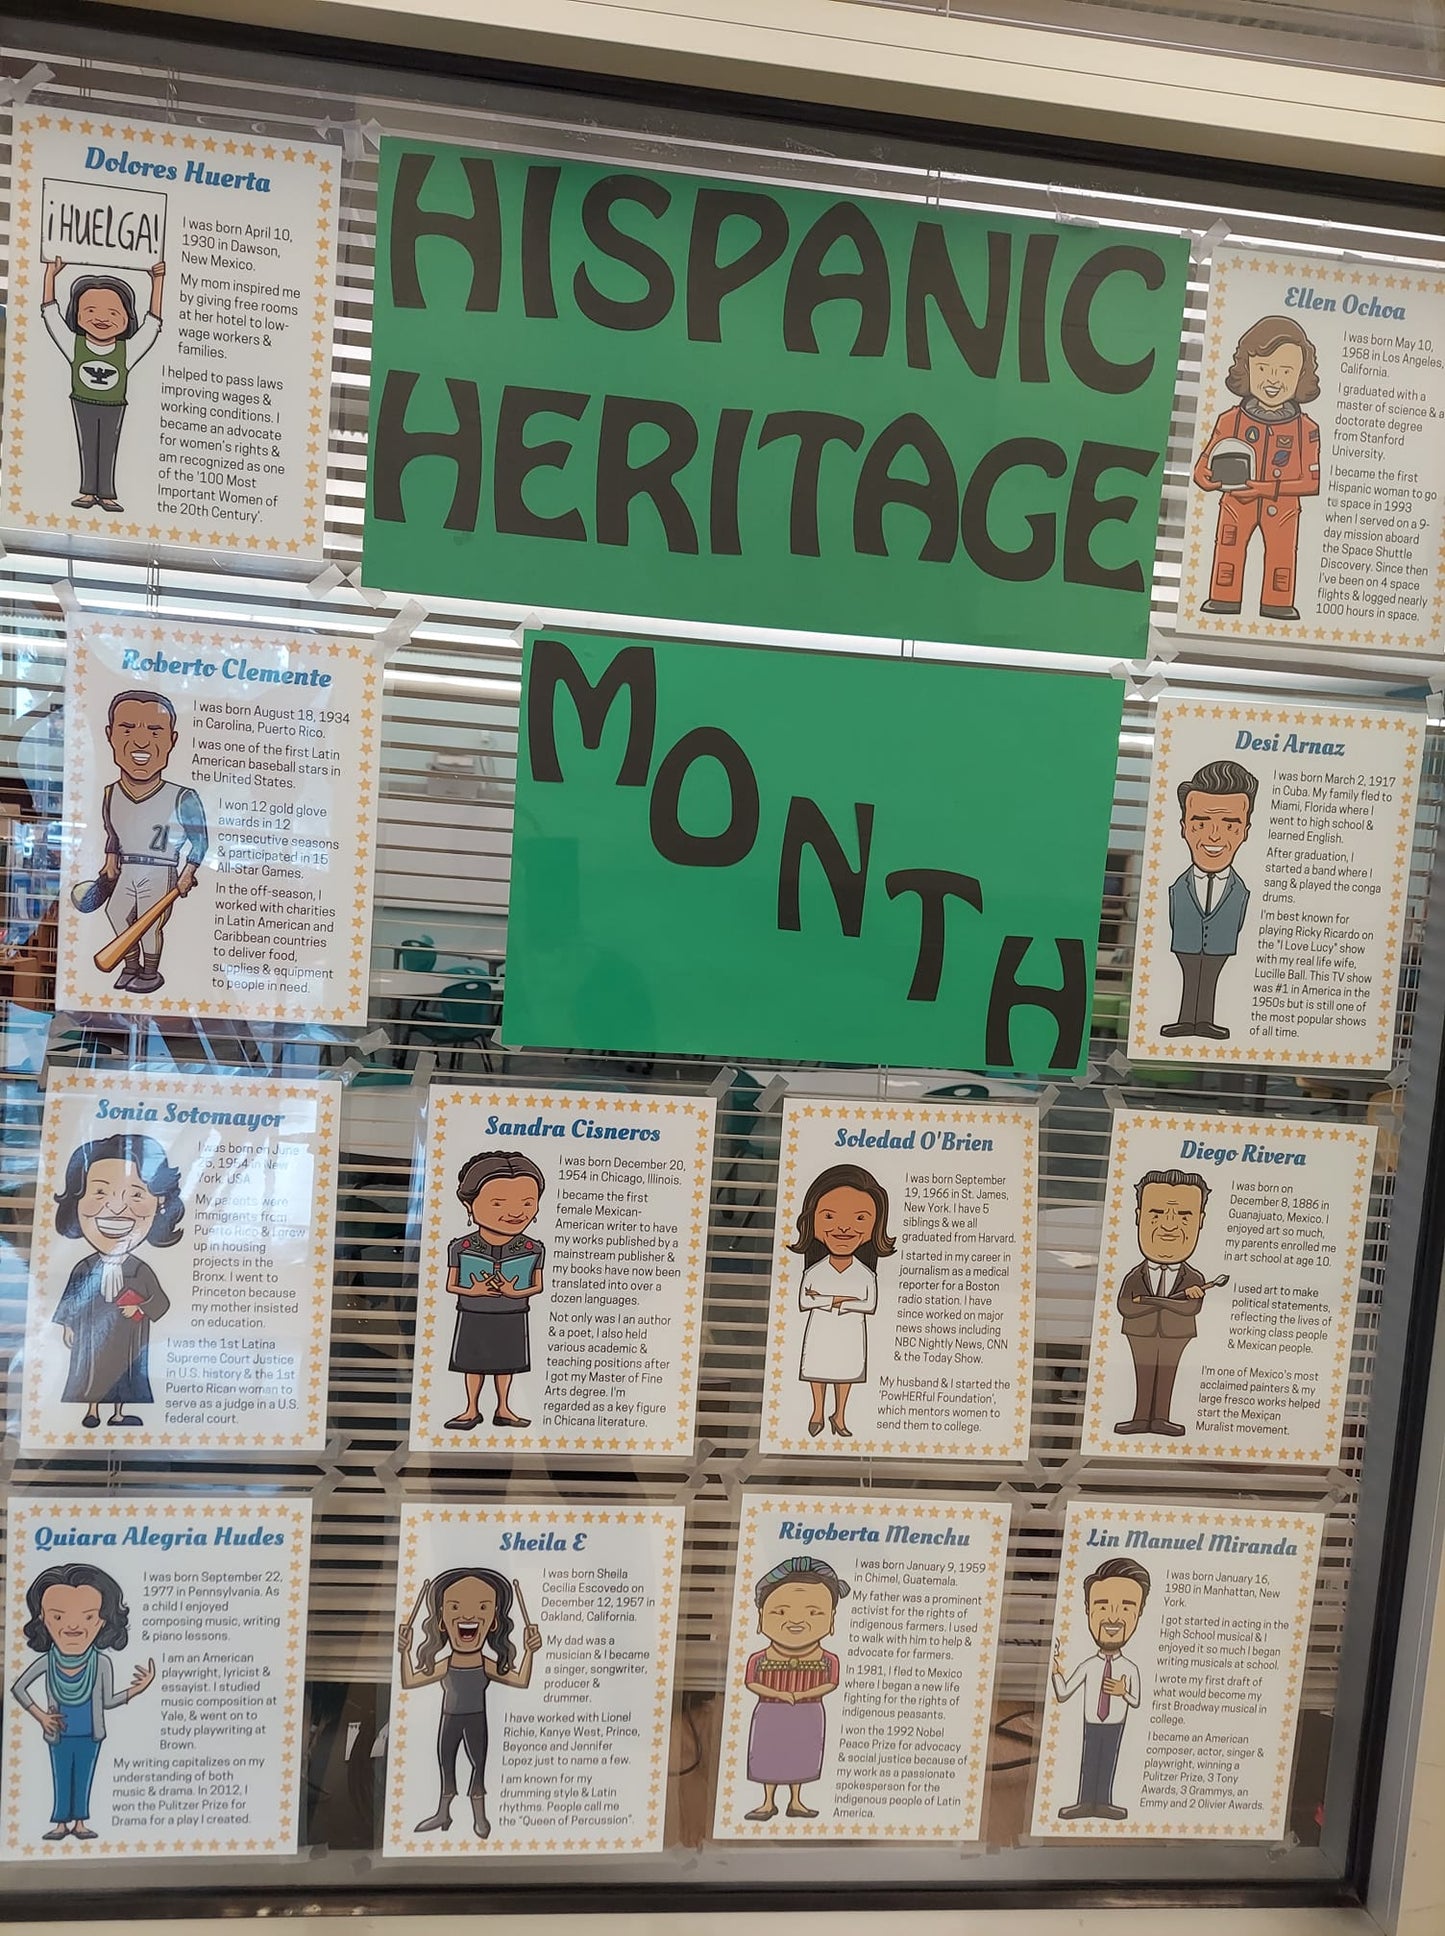 Dolores Huerta
¡HUELGA!
I was born April 10,
1930 in Dawson,
New Mexico.
My mom inspired me
by giving free rooms
at her hotel to low-
wage workers &
families.
I helped to pass laws
improving wages &
working conditions. I
became an advocate
for women's rights &
am recognized as one
of the '100 Most
Important Women of
the 20th Century'.
HISPANIC
HERITAGE
MONTH
Ellen Ochoa
I was born May 10,
1958 in Los Angeles,
California.
I graduated with a
master of science & a
doctorate degree
from Stanford
University.
I became the first
Hispanic woman to go
to space in 1993
when I served on a 9-
day mission aboard
the Space Shuttle
Discovery. Since then
I've been on 4 space
flights & logged nearly
1000 hours in space.
Roberto Clemente
21
I was born August 18, 1934
in Carolina, Puerto Rico.
I was one of the first Latin
American baseball stars in
the United States.
I won 12 gold glove
awards in 12
consecutive seasons
& participated in 15
All-Star Games.
In the off-season, I
worked with charities
in Latin American and
Caribbean countries
to deliver food,
supplies & equipment
to people in need.
Desi Arnaz
I was born March 2, 1917
in Cuba. My family fled to
Miami, Florida where I
went to high school &
learned English.
After graduation, I
started a band where I
sang & played the conga
drums.
I'm best known for
playing Ricky Ricardo on
the "I Love Lucy" show
with my real life wife,
Lucille Ball. This TV show
was #1 in America in the
1950s but is still one of
the most popular shows
of all time.
Sonia Sotomayor
I was born on June
25, 1954 in New
York, USA.
My parents were
immigrants from
Puerto Rico & I grew
up in housing
projects in the
Bronx. I went to
Princeton because
my mother insisted
on education.
I was the 1st Latina
Supreme Court Justice
in U.S. history & the 1st
Puerto Rican woman to
serve as a judge in a U.S.
federal court.
Sandra Cisneros
I was born December 20,
1954 in Chicago, Illinois.
I became the first
female Mexican-
American writer to have
my works published by a
mainstream publisher &
my books have now been
translated into over a
dozen languages.
Not only was I an author
& a poet, I also held
various academic &
teaching positions after
I got my Master of Fine
Arts degree. I'm
regarded as a key figure
in Chicana literature.
Soledad O'Brien
I was born September
19, 1966 in St. James,
New York. I have 5
siblings & we all
graduated from Harvard.
I started in my career in
journalism as a medical
reporter for a Boston
radio station. I have
since worked on major
news shows including
NBC Nightly News, CNN
& the Today Show.
My husband & I started the
'PowHERful Foundation',
which mentors women to
send them to college.
Diego Rivera
I was born on
December 8, 1886 in
Guanajuato, Mexico. I
enjoyed art so much,
my parents enrolled me
in art school at age 10.
I used art to make
political statements,
reflecting the lives of
working class people
& Mexican people.
I'm one of Mexico's most
acclaimed painters & my
large fresco works helped
start the Mexican
Muralist movement.
Quiara Alegria Hudes
I was born September 22,
1977 in Pennsylvania. As
a child I enjoyed
composing music, writing
& piano lessons.
I am an American
playwright, lyricist &
essayist. I studied
music composition at
Yale, & went on to
study playwriting at
Brown.
My writing capitalizes on my
understanding of both
music & drama. In 2012, I
won the Pulitzer Prize for
Drama for a play I created.
Sheila E
I was born Sheila
Cecilia Escovedo on
December 12, 1957 in
Oakland, California.
My dad was a
musician & I became
a singer, songwriter,
producer &
drummer.
I have worked with Lionel
Richie, Kanye West, Prince,
Beyonce and Jennifer
Lopez just to name a few.
I am known for my
drumming style & Latin
rhythms. People call me
the "Queen of Percussion".
Rigoberta Menchu
I was born January 9, 1959
in Chimel, Guatemala.
My father was a prominent
activist for the rights of
indigenous farmers. I used
to walk with him to help &
advocate for farmers.
In 1981, I fled to Mexico
where I began a new life
fighting for the rights of
indigenous peasants.
I won the 1992 Nobel
Peace Prize for advocacy
& social justice because of
my work as a passionate
spokesperson for the
indigenous people of Latin
America.
Lin Manuel Miranda
I was born January 16,
1980 in Manhattan, New
York.
I got started in acting in the
High School musical & I
enjoyed it so much I began
writing musicals at school.
I wrote my first draft of
what would become my
first Broadway musical in
college.
I became an American
composer, actor, singer &
playwright, winning a
Pulitzer Prize, 3 Tony
Awards, 3 Grammys, an
Emmy and 2 Olivier Awards.